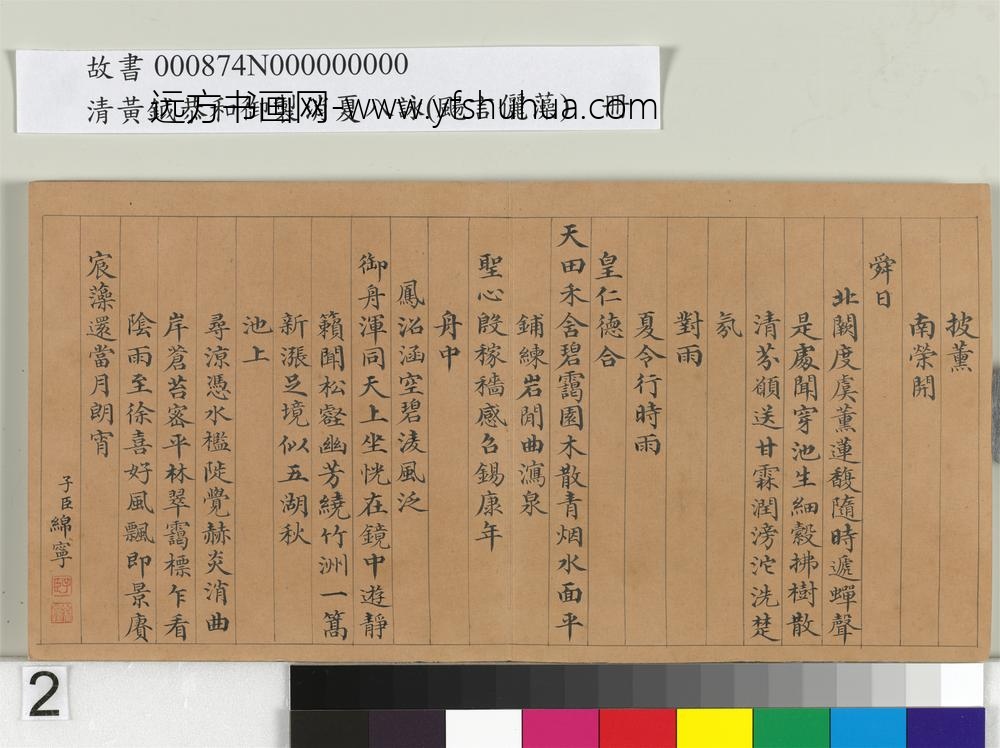 故書 000874N000000000
清黃鉞恭和御製消夏 詠
远方书画网-www.yfshuhua.com
披薰
南榮開
舜日
北闕度虞薰蓮馥隨時遞蟬聲
是處聞穿池生細縠拂樹散
清芬願送甘霖潤滂沱洗楚
氛
對雨
夏令行時雨
皇仁德合
天田禾含碧靄園木散青烟水面平
鋪練岩閒曲瀉泉
聖心殷稼穡感召錫康年
舟中
鳳沼涵空碧淩風泛
御舟渾同天上坐恍在鏡中遊靜
籟聞松壑幽芳繞竹洲一篙
新漲足境似五湖秋
池上
尋涼憑水檻陡覺赫炎消曲
岸蒼苔密平林翠靄標乍看
陰雨至徐喜好風飄即景賡
宸藻還當月朗宵
子臣綿寧
2